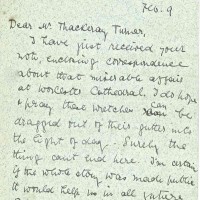 Feb. 9
Dear Mr Thackeray Turner,
I have just received your
note, enclosing correspondence
about that miserable affair
at Worcester Cathedral. I do hope
& pray these wretches can be
dragged out of their gutter into
the light of day - Surely the
thing can't end here. I'm certain
if the whole story was made public
it would help us in all future